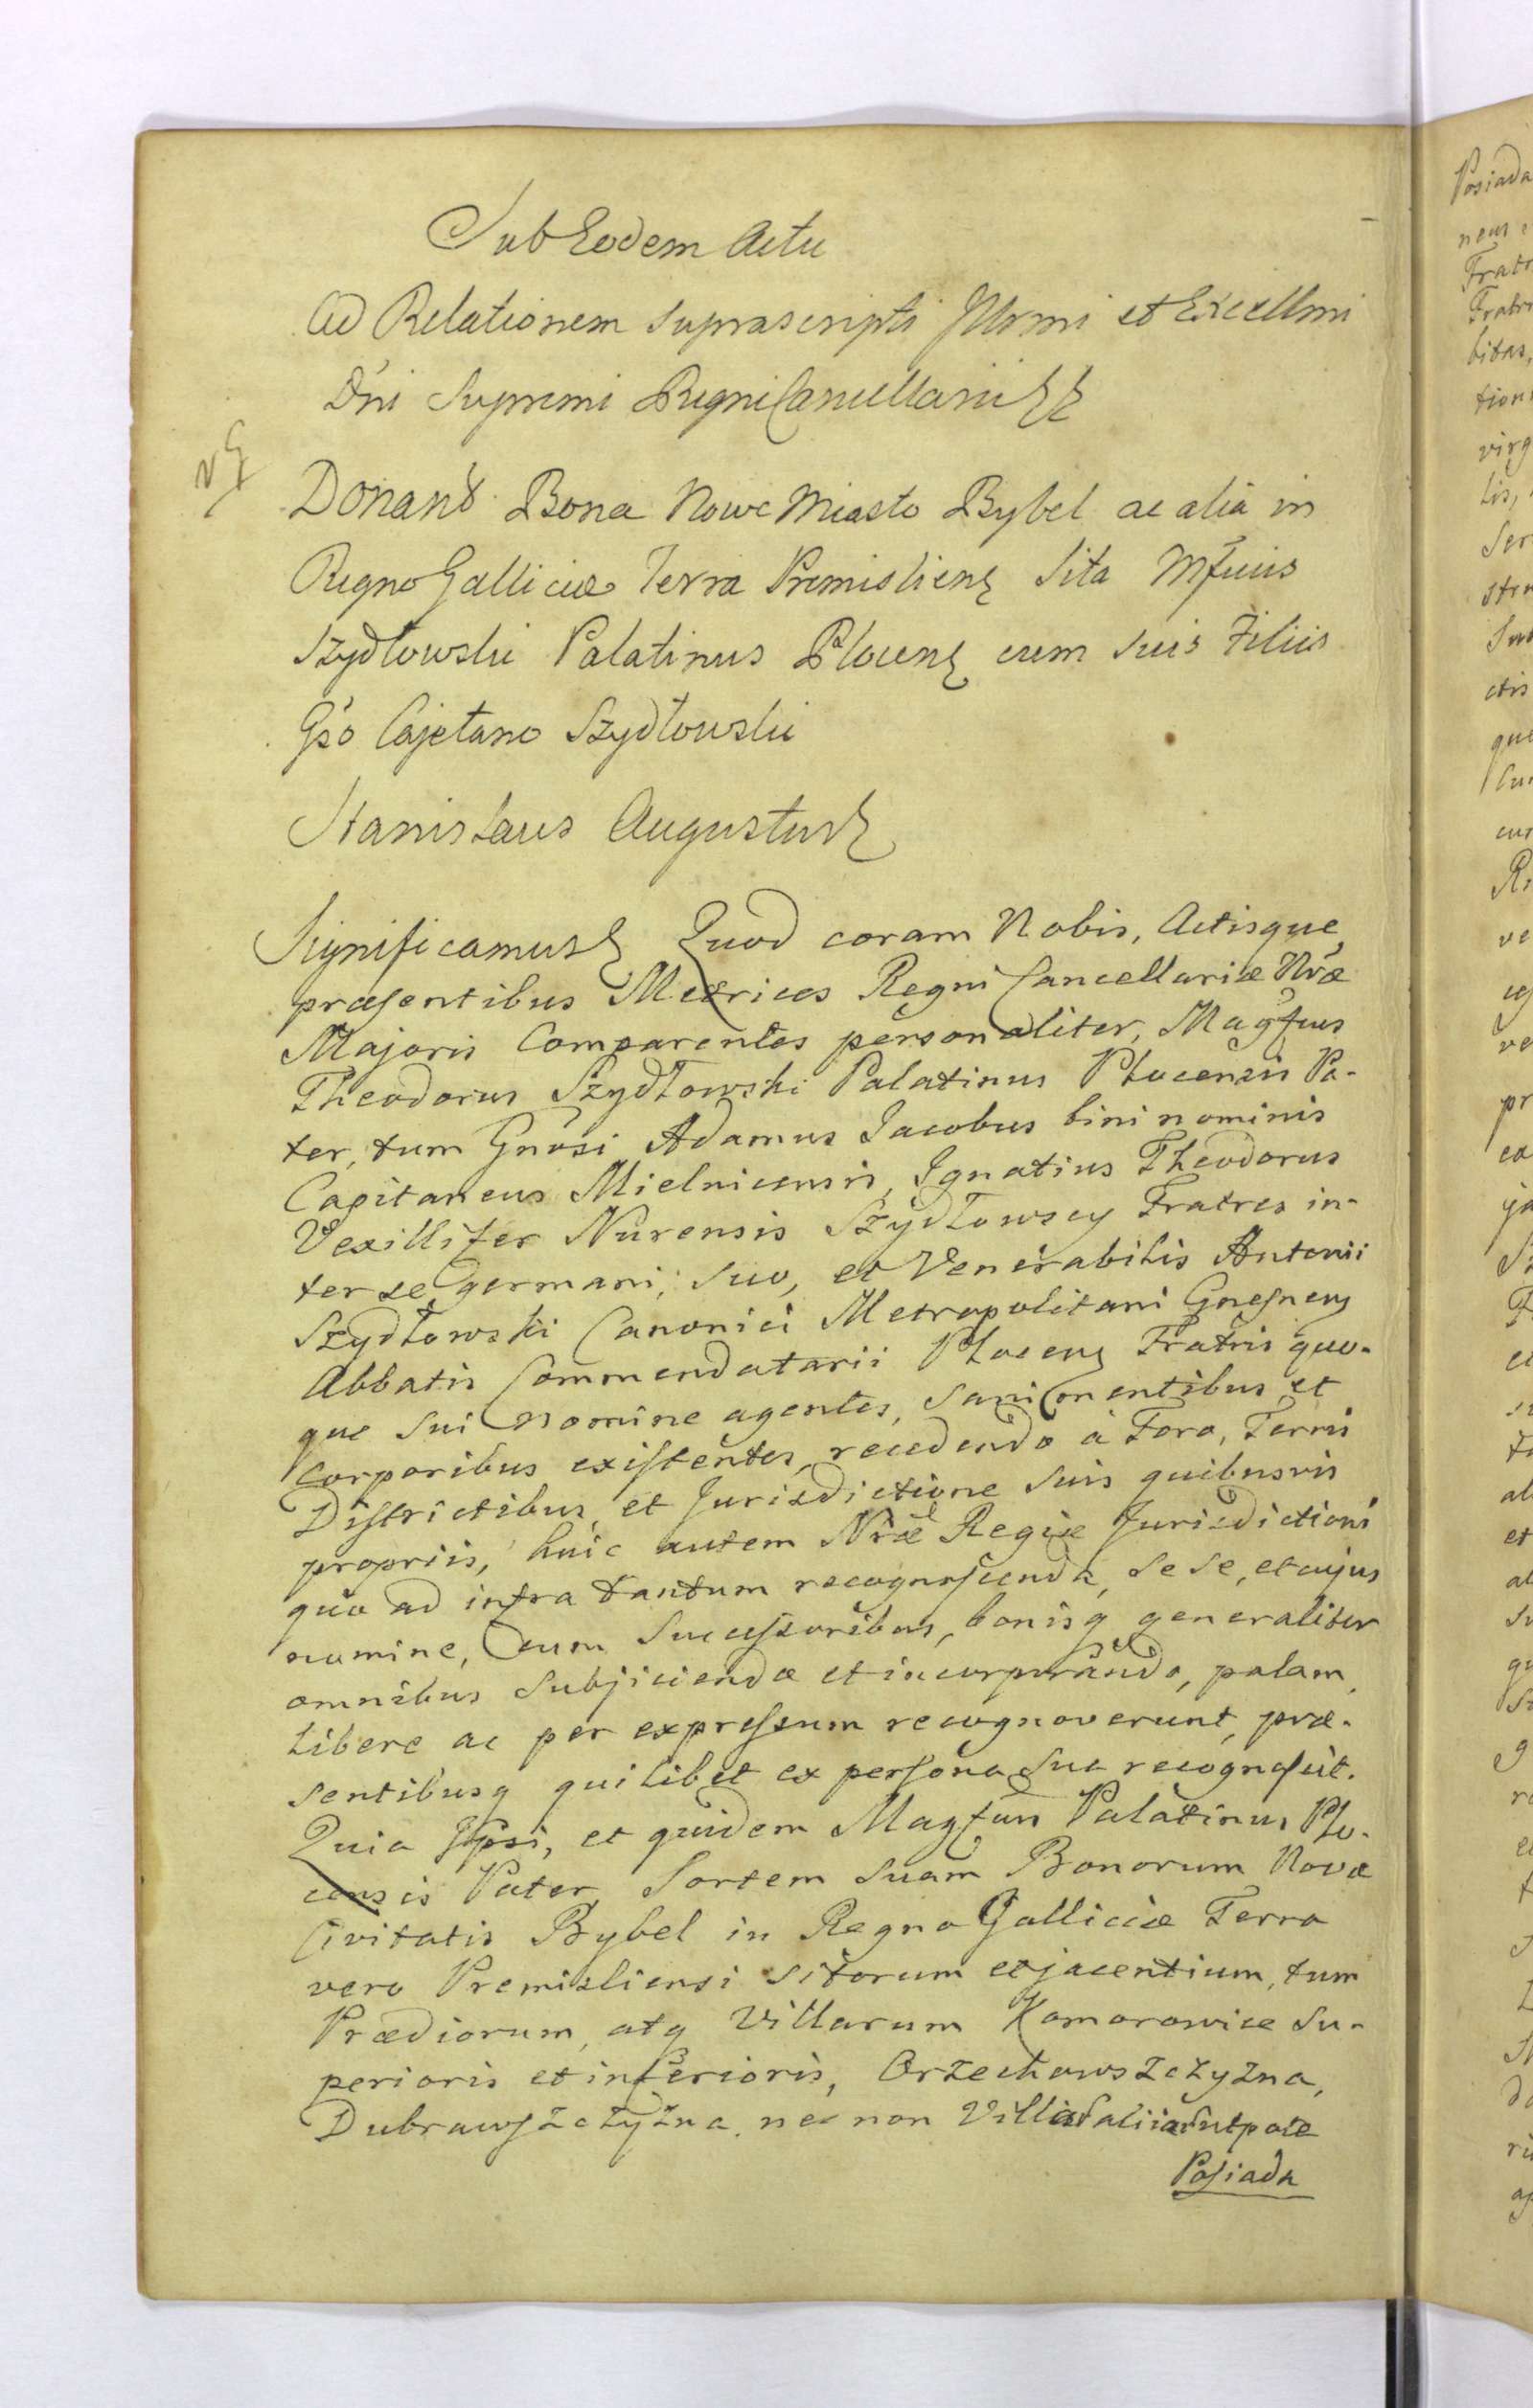 Sub Eodem Actu
Ad Relationem suprascripti Illrmi et Excellmi
Dni Supremi Regni Cancellarii
Donant Bona Nowe Miasto Bybel ac alia in
Regno Galliciæ Terra Premislien sita Mfcus
Szydłowski Palatinus Plocens cum suis Filiis
Gso Cajetano Szydłowski
Stanislaus Augustus
Significamus Quod coram Nobis, Actisque
præsentibus Metrices Regni Cancellariæ Nræ
Majoris Comparentes personaliter, Magfcus
Theodorus Szydłowski Palatinus Plocensis Pa-
ter, tum Gnosi Adamus Jacobus bini nominis
Capitaneus Mielnicensis, Ignatius Theodorus
Vexillifer Nurensis Szydłowscy Fratres in-
ter se germani, suo, et Venerabilis Antonii
Szydłowski Canonici Metropolitani Gnesnens
Abbatis Commendatarii Plocens Fratris quo-
que sui nomine agentes, sani mentibus et
corporibus existentes, recedendo à Foro, Terris
Districtibus, et Jurisdictione suis quibusvis
propriis, huic autem Nræ Regiæ Jurisdictioni
quo ad infra tantum recognoscenda, se se, et cujus
nomine, cum successoribus, bonisq generaliter
omnibus subjiciendo et incorporando, palam,
libere ac per expressum recognoverunt, præ-
sentibusq quilibet ex persona sua recognoscit.
Quia Ipsi, et quidem Magfcus Palatinus Plo-
censis Pater, Sortem suam Bonorum Novæ
Civitatis Bybel in Regno Galliciæ Terra
vero Premisliensi sitorum et jacentium, tum
Prædiorum, atq Villarum Komorowice su-
perioris et inferioris, Orzechowszczyzna,
Dubrawszczyzna, nec non Villas alias utpote
Posiada